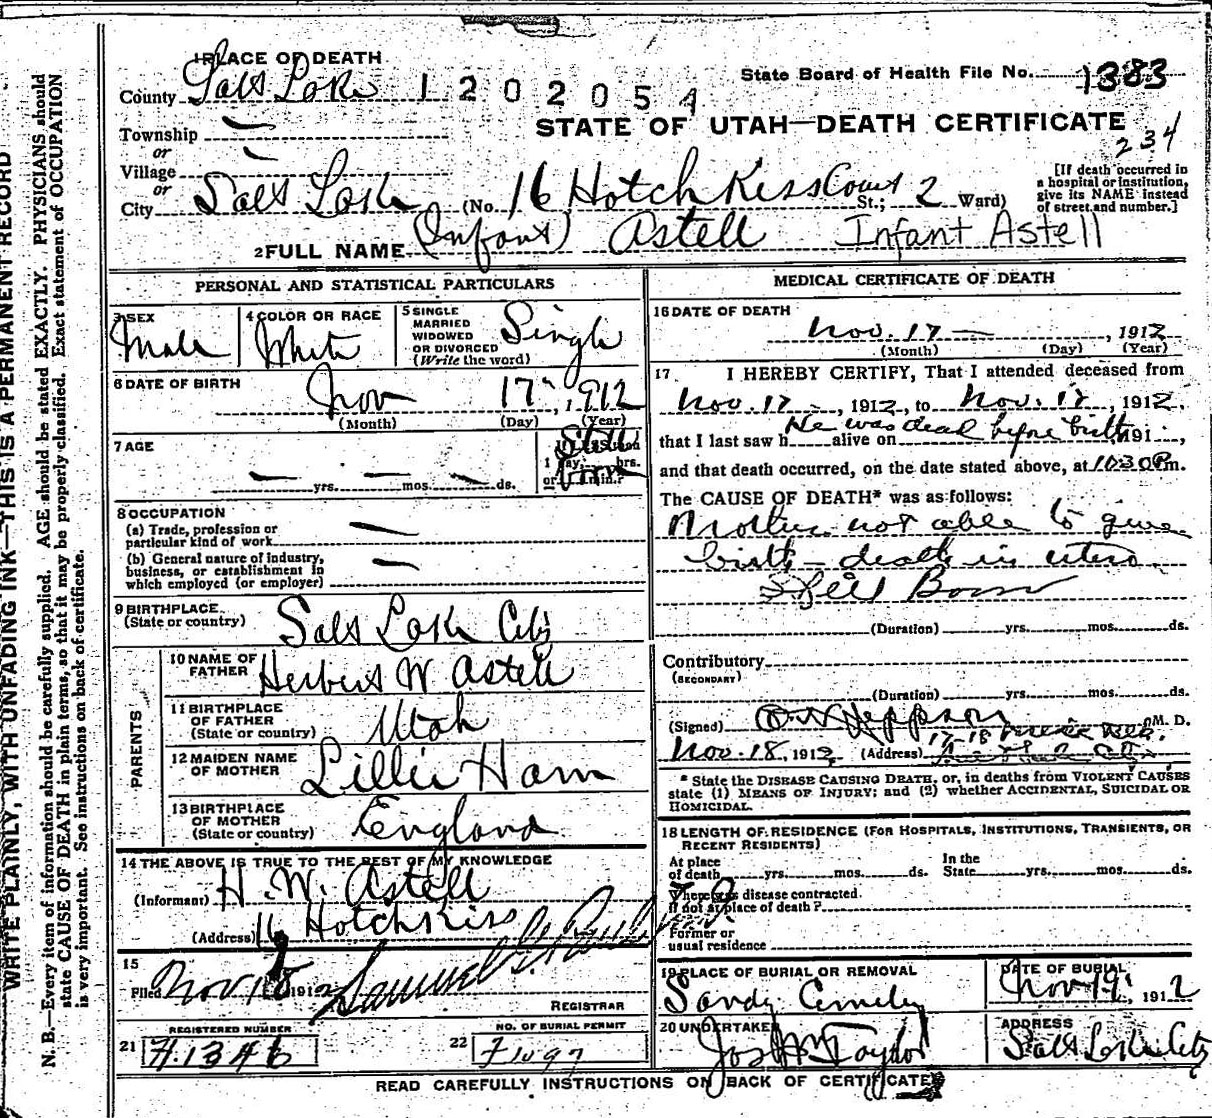 WRITE PLAINLY, WITH UNFADING INK—THIS IS A PERMANENT RECORD
N. B.—Every item of information should be carefully supplied. AGE should be stated EXACTLY. PHYSICIANS should
state CAUSE OF DEATH in plain terms, so that it may be properly classified. Exact statement of OCCUPATION
is very important. See instructions on back of certificate.
1 PLACE OF DEATH
County Salt Lake 1202054
State Board of Health File No. 1383
STATE OF UTAH—DEATH CERTIFICATE
234
Township
or
Village
or
City Salt Lake (No. 16 Hotchkiss Court St.; 2 Ward)
[If death occurred in
a hospital or institution,
give its NAME instead
of street and number.]
2 FULL NAME (Infant) Astell Infant Astell
PERSONAL AND STATISTICAL PARTICULARS
3 SEX
Male
4 COLOR OR RACE
White
5 SINGLE
MARRIED
WIDOWED
OR DIVORCED
(Write the word)
Single
6 DATE OF BIRTH
Nov 17 1912
(Month) (Day) (Year)
7 AGE
yrs. mos. ds.
1 day, hrs.
or min.?
8 OCCUPATION
(a) Trade, profession or
particular kind of work
(b) General nature of industry,
business, or establishment in
which employed (or employer)
9 BIRTHPLACE
(State or country)
Salt Lake City
PARENTS
10 NAME OF
FATHER
Herbert W Astell
11 BIRTHPLACE
OF FATHER
(State or country)
Utah
12 MAIDEN NAME
OF MOTHER
Lillie Ham
13 BIRTHPLACE
OF MOTHER
(State or country)
England
14 THE ABOVE IS TRUE TO THE BEST OF MY KNOWLEDGE
(Informant) H. W. Astell
(Address) 16 Hotchkiss
15
Filed Nov 18 1912 Samuel G.
REGISTRAR
21 REGISTERED NUMBER
22 NO. OF BURIAL PERMIT
MEDICAL CERTIFICATE OF DEATH
16 DATE OF DEATH
Nov. 17 — , 1912
(Month) (Day) (Year)
17 I HEREBY CERTIFY, That I attended deceased from
Nov. 17 , 1912, to Nov. 17 , 1912,
that I last saw h alive on He was dead before birth 191 ,
and that death occurred, on the date stated above, at 10:30 P m.
The CAUSE OF DEATH* was as follows:
Mother not able to give
birth — death in utero
Still Born
(Duration) yrs. mos. ds.
Contributory
(SECONDARY)
(Duration) yrs. mos. ds.
(Signed) M. D.
Nov. 18, 1912 (Address) 17-18
* State the DISEASE CAUSING DEATH, or, in deaths from VIOLENT CAUSES
state (1) MEANS OF INJURY; and (2) whether ACCIDENTAL, SUICIDAL OR
HOMICIDAL.
18 LENGTH OF RESIDENCE (FOR HOSPITALS, INSTITUTIONS, TRANSIENTS, OR
RECENT RESIDENTS)
At place
of death yrs. mos. ds.
In the
State yrs. mos. ds.
Where was disease contracted
If not at place of death?
Former or
usual residence
19 PLACE OF BURIAL OR REMOVAL
Sandy Cemetery
DATE OF BURIAL
Nov 19, 1912
20 UNDERTAKER
Jos Wm Taylor
ADDRESS
Salt Lake City
READ CAREFULLY INSTRUCTIONS ON BACK OF CERTIFICATE